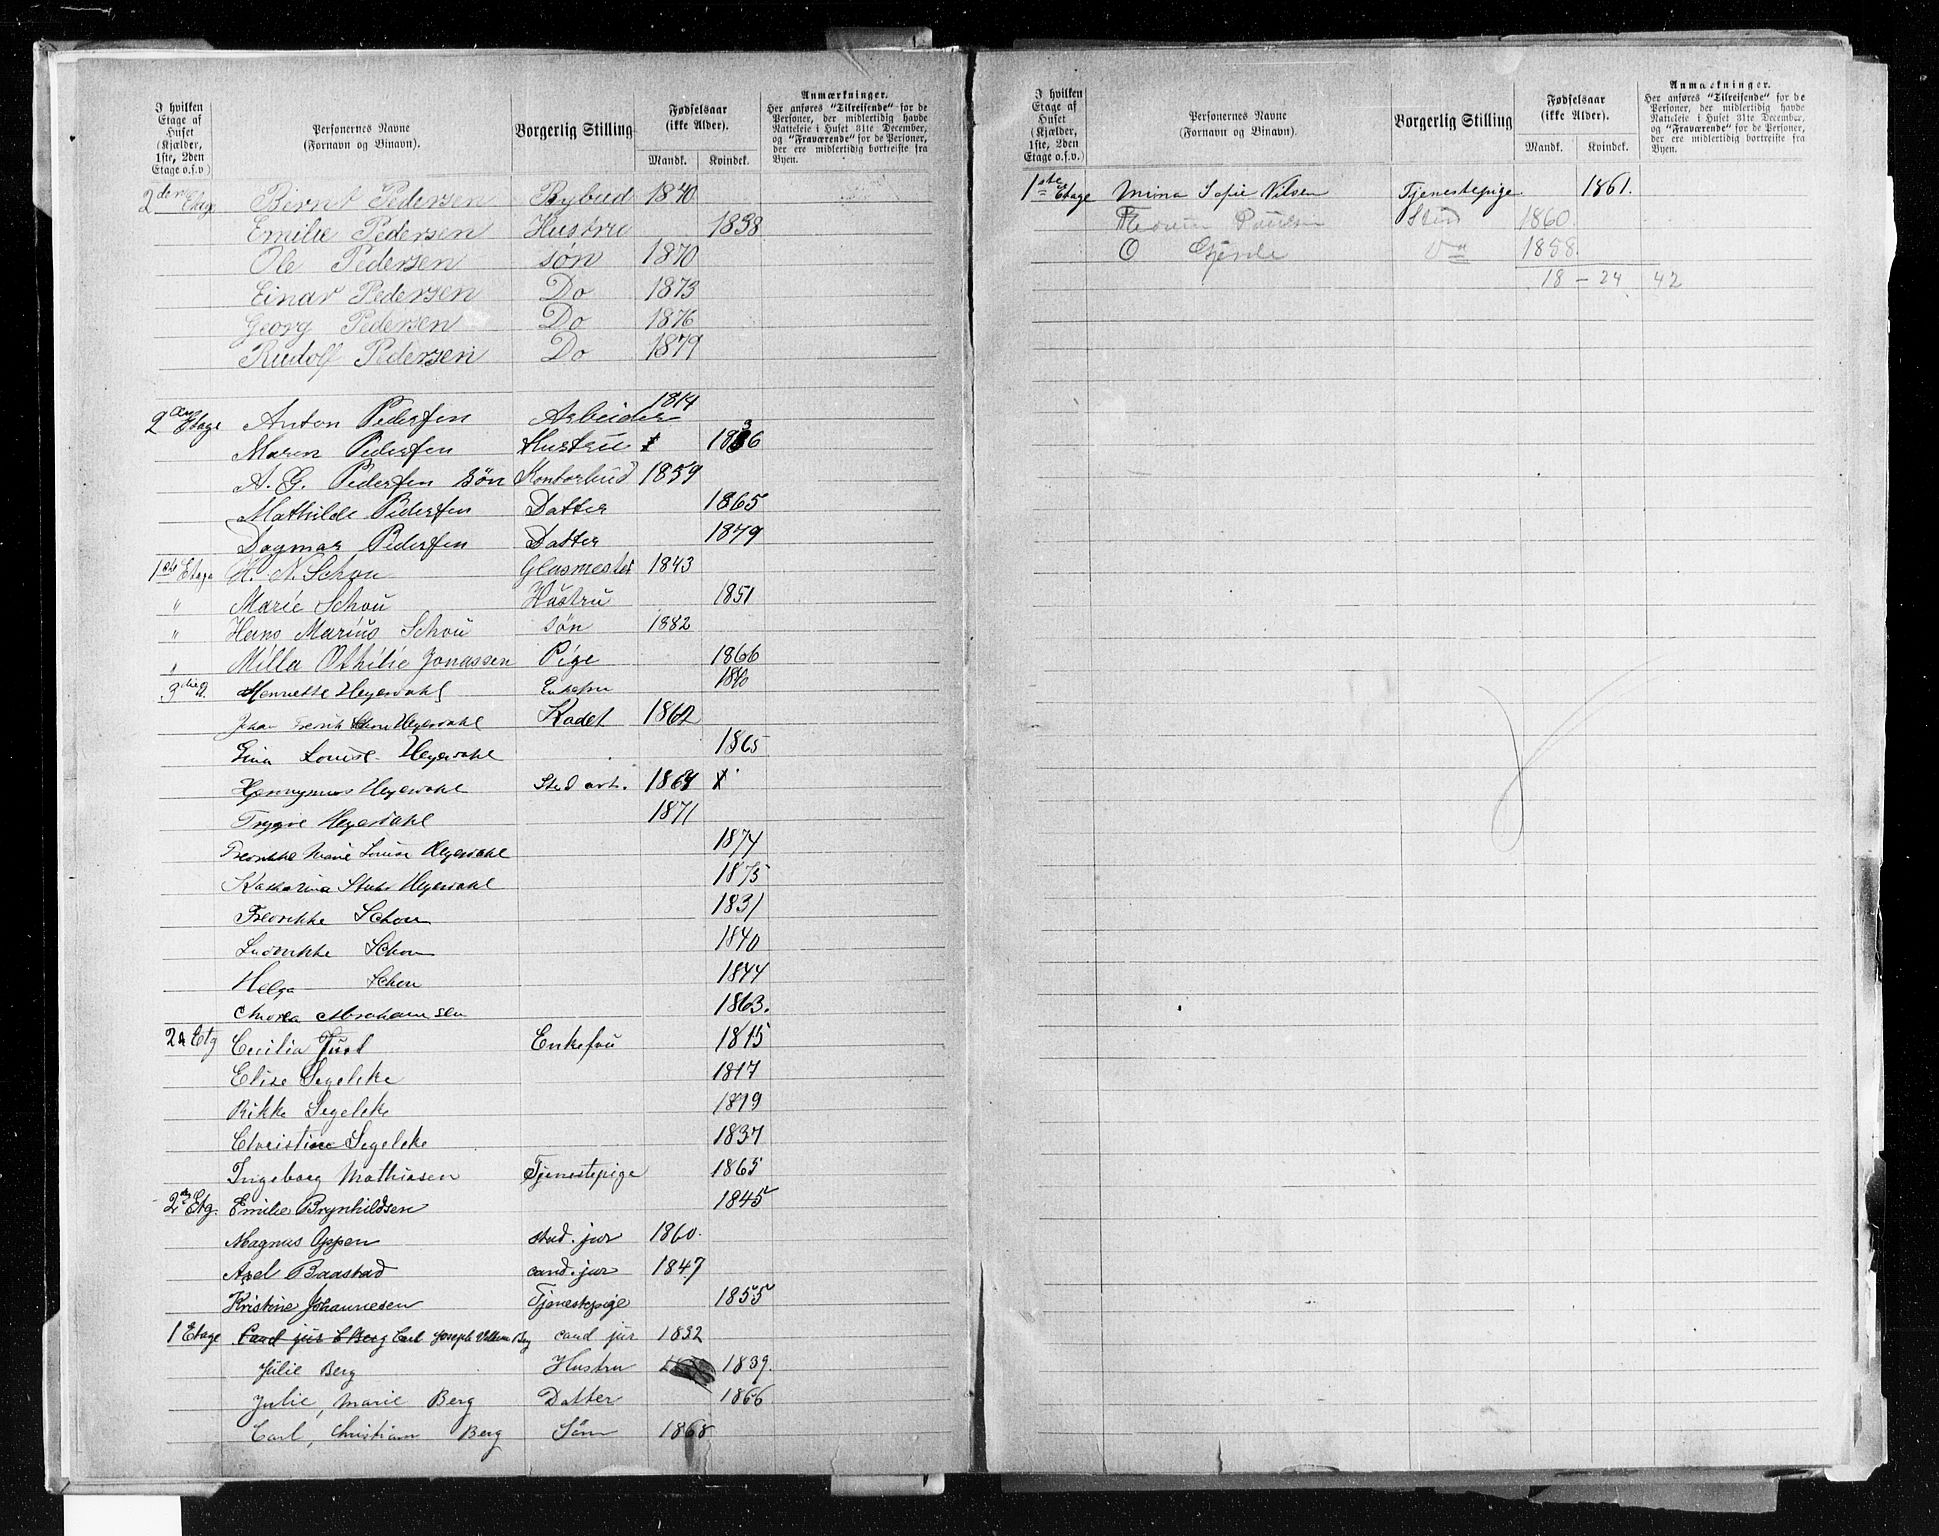 I hvilken Etage af Huset (Kjælder, 1ste, 2den Etage o.s.v) Personernes Navne (Fornavn og Binavn). Borgerlig Stilling Fødselsaar (ikke Alder). Mandk. Kvindek. Anmærkninger. Her anføres "Tilreisende" for de Personer, der midlertidig havde Natteleie i Huset 31te December, og "Fraværende" for de Personer, der ere midlertidig bortreiste fra Byen.
2den Etage Bernt Pedersen Bybud 1840
Emilie Pedersen Hustru 1838
Ole Pedersen søn 1870
Einar Pedersen Do 1873
Georg Pedersen Do 1876
Rudolf Pedersen Do 1879
2den Etage Anton Pedersen Arbeider 1814
Maren Pedersen Hustru 1836
A. G. Pedersen søn Kontorbud 1859
Mathilde Pedersen Datter 1865
Dagmar Pedersen Datter 1879
1ste Etage H. N. Schou Glasmester 1843
" Marie Schou Hustru 1851
" Hans Marius Schou søn 1882
" Milla Othilie Jonassen Pige 1866
3die Henriette Heyerdahl Enkefru 1840
Johan Fredrik Schou Heyerdahl Kadet 1862
Gina Louise Heyerdahl 1865
Hieronymus Heyerdahl Stud art. 1867
Trygve Heyerdahl 1871
Fredrikke Marie Louise Heyerdahl 1874
Katharina Heyerdahl 1875
Fredrikke Schou 1831
Ludvikke Schou 1840
Helga Schou 1844
Abrahamsen 1863.
2d Etg Cecilia Juul Enkefru 1815
Elise Segelcke 1817
Rikke Segelcke 1819
Christine Segelcke 1837
Ingeborg Mathiasen Tjenestepige 1865
2den Etg. Emilie Brynhildsen 1845
Magnus Oppen stud. jur 1860.
Axel Baastad cand. jur 1847
Kristine Johannesen Tjenestepige 1855
1 Etage Cand jur C Berg Carl Joseph Vilhelm Berg cand jur 1832
Julie Berg Hustru 1839.
Julie, Marie Berg Datter 1866
Carl, Christian Berg Søn 1868
I hvilken Etage af Huset (Kjælder, 1ste, 2den Etage o.s.v.) Personernes Navne (Fornavn og Binavn). Borgerlig Stilling Fødselsaar (ikke Alder). Mandk. Kvindek. Anmærkninger. Her anføres "Tilreisende" for de Personer, der midlertidig havde Natteleie i Huset 31te December, og "Fraværende" for de Personer, der ere midlertidig bortreiste fra Byen.
1ste Etage Mina Sofie Nilsen Tjenestepige 1861.
Stud 1860.
O Gjerde Do 1858.
18 – 24 42